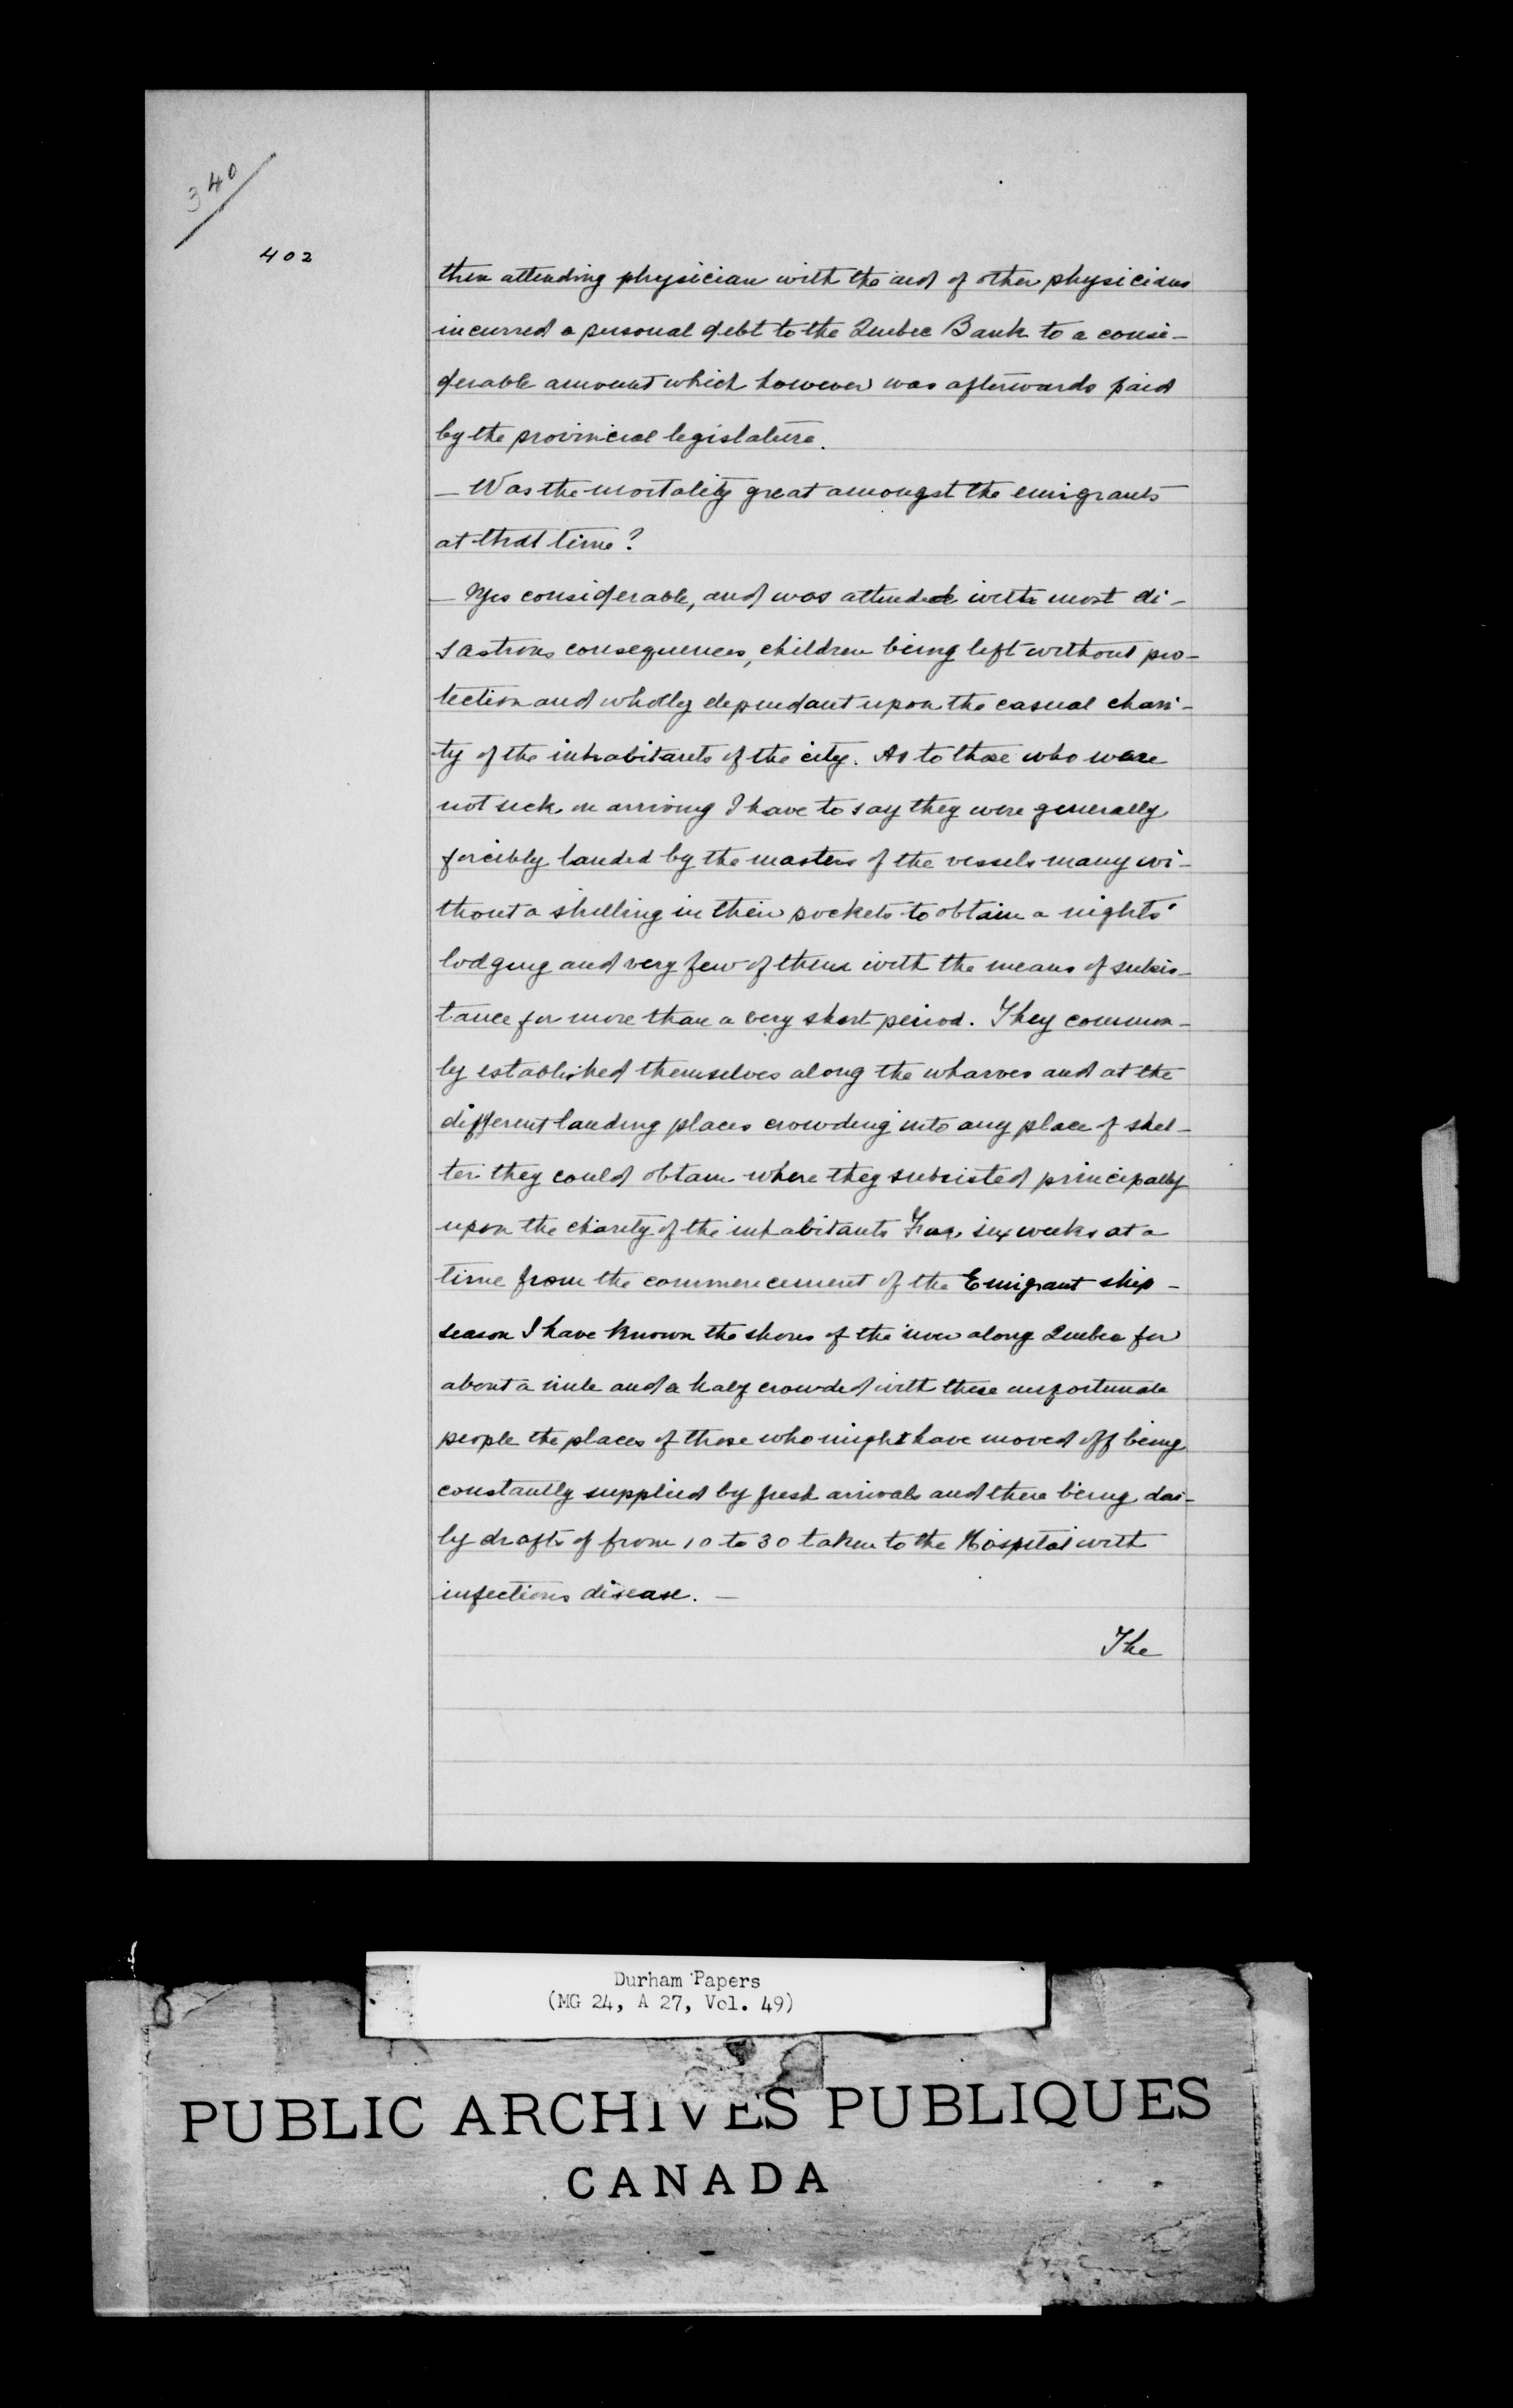 340
402
then attending physician with the aid of other physicians
incurred a personal debt to the Quebec Bank to a consi-
derable amount which however was afterwards paid
by the provincial legislature.
— Was the mortality great amongst the emigrants
at that time?
— Yes considerable, and was attended with most di-
sastrous consequences, children being left without pro-
tection and wholly dependant upon the casual chari-
ty of the inhabitants of the city. As to those who were
not sick on arriving I have to say they were generally
forcibly landed by the masters of the vessels many wi-
thout a shilling in their pockets to obtain a nights'
lodging and very few of them with the means of subsis-
tance for more than a very short period. They common-
ly established themselves along the wharves and at the
different landing places crowding into any place of shel-
ter they could obtain where they subsisted principally
upon the charity of the inhabitants For six weeks at a
time from the commencement of the Emigrant ship-
season I have known the shores of the river along Quebec for
about a mile and a half crowded with these unfortunate
people the places of those who might have moved off being
constantly supplied by fresh arrivals and there being dai-
ly drafts of from 10 to 30 taken to the Hospital with
infectious disease. —
The
Durham Papers
(MG 24, A 27, Vol. 49)
PUBLIC ARCHIVES PUBLIQUES
CANADA